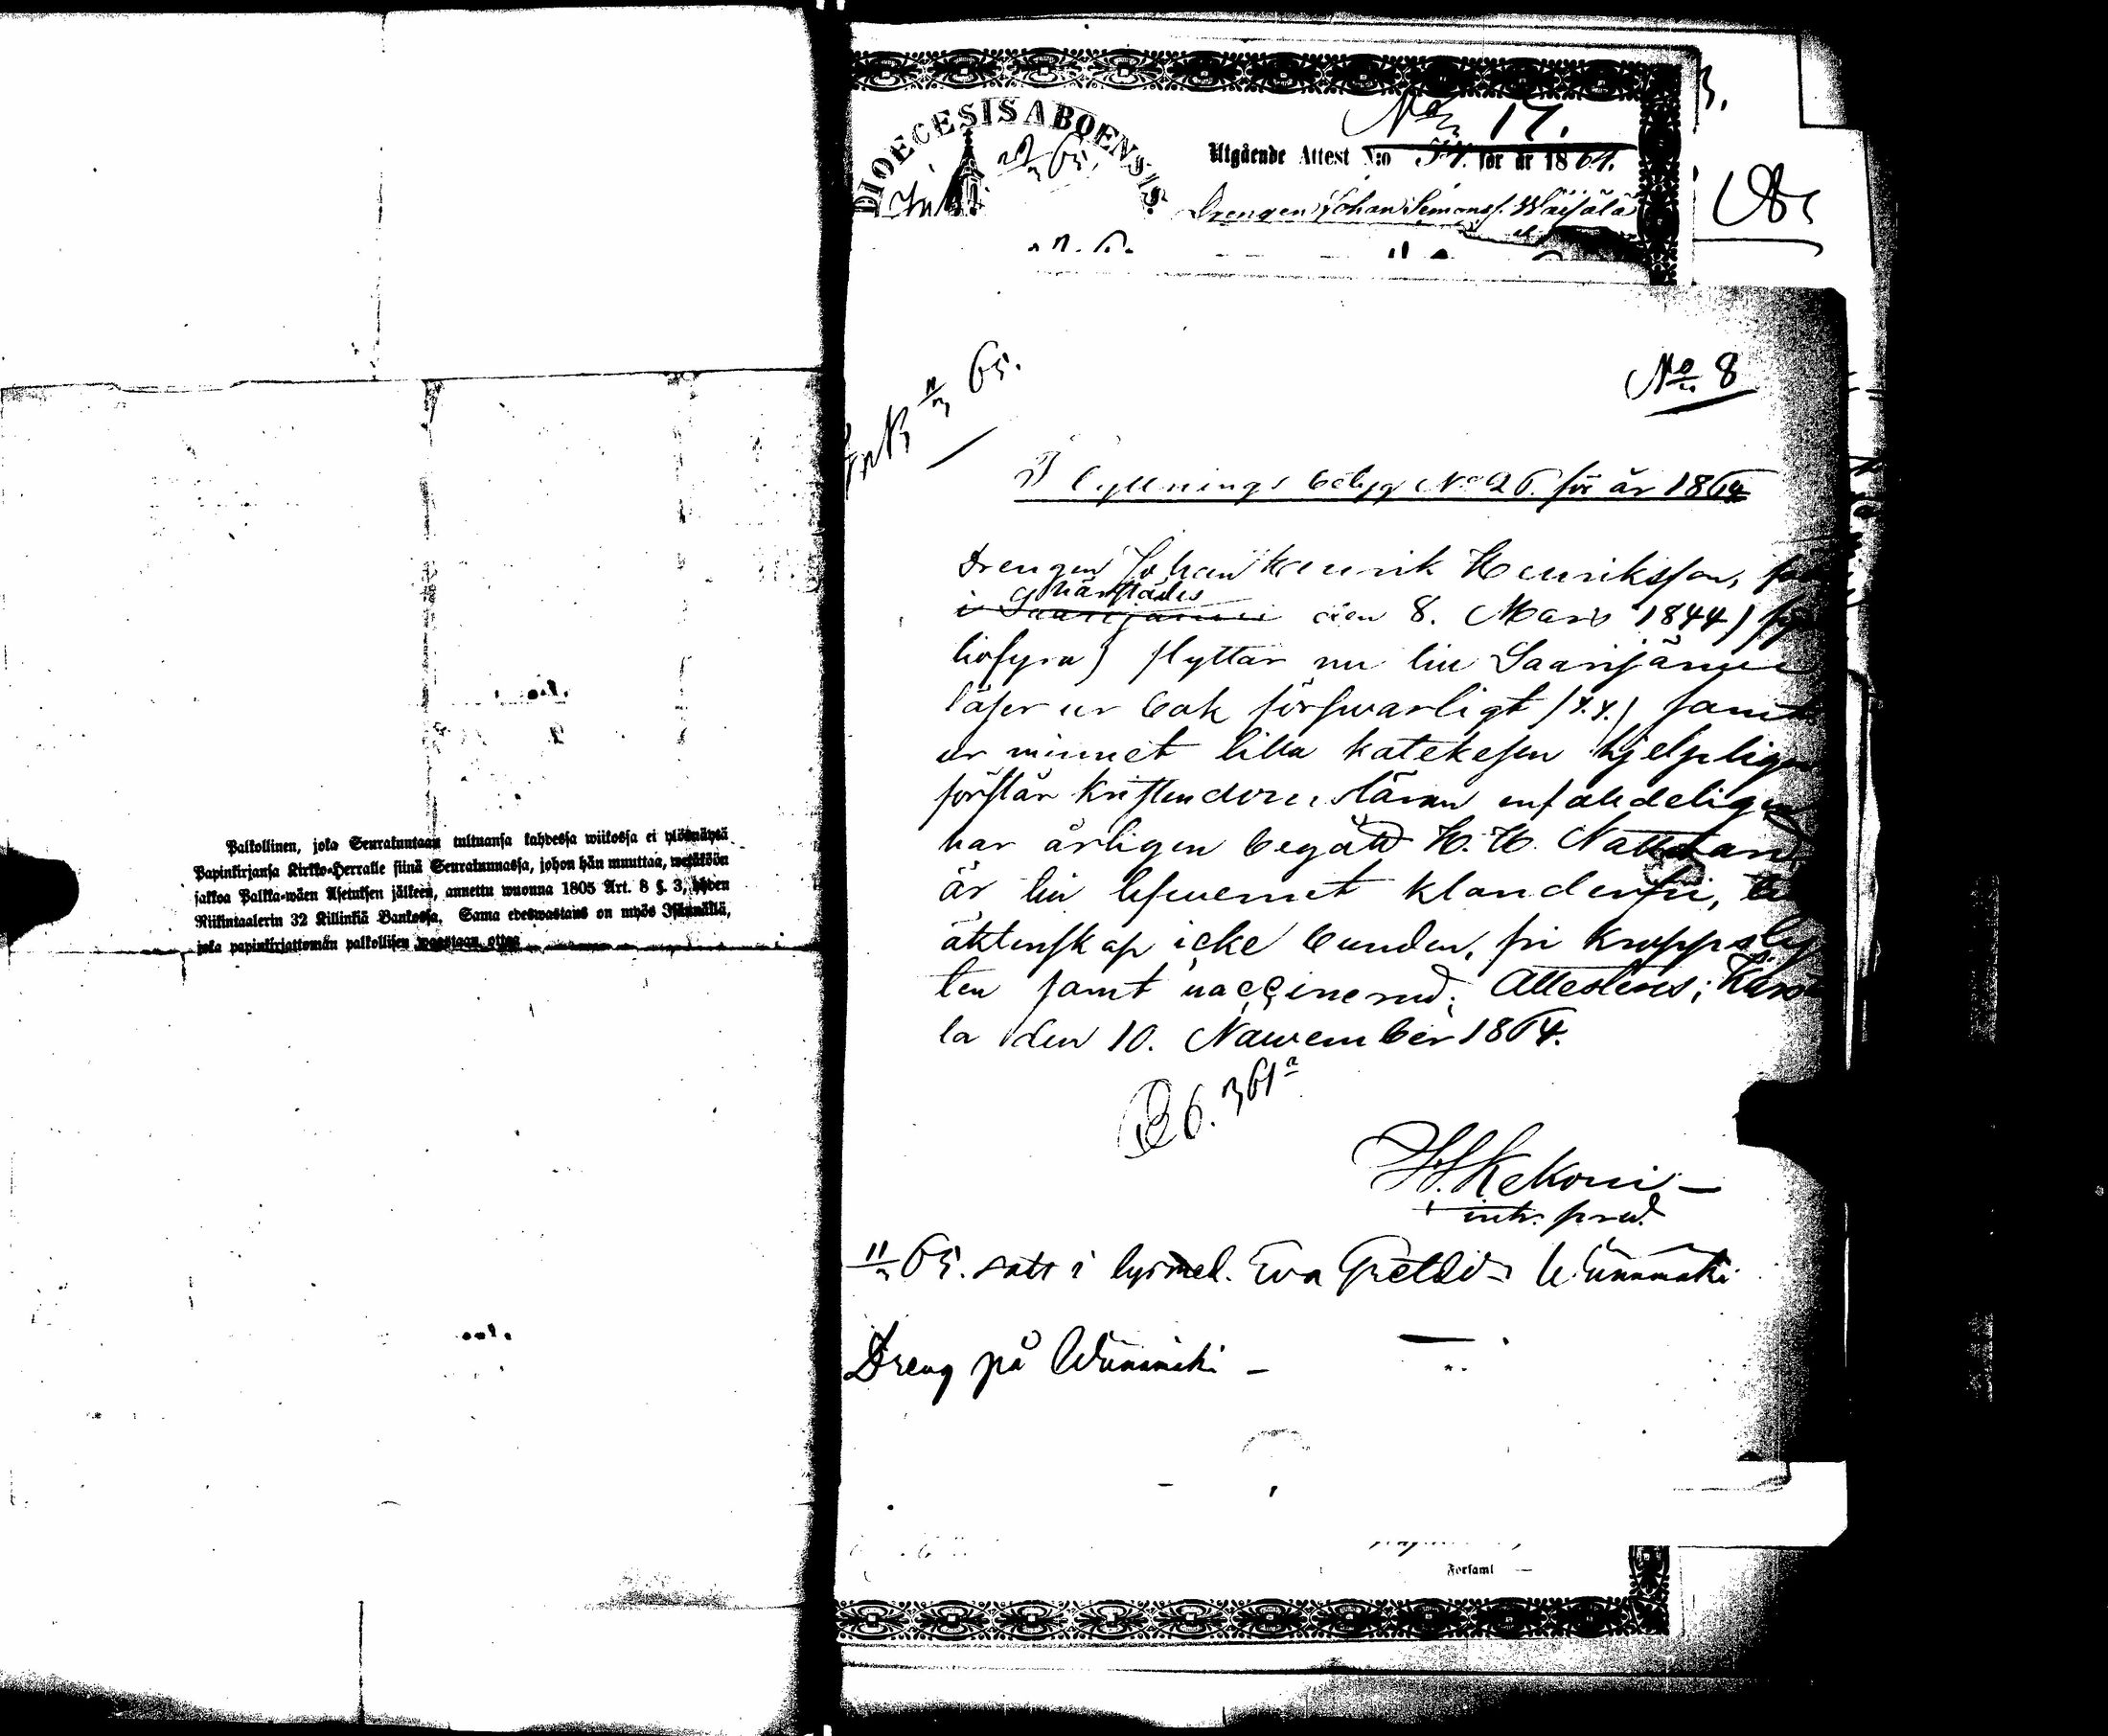 Palkollinen, joka Seurakuntaan tultuansa kahdessa wiikossa ei ylösnäytä
Papinkirjansa Kirkko-Herralle siinä Seurakunnassa, johon hän muuttaa, wetäköön
sakkoa Palkka-wäen Asetuksen jälkeen, annettu wuonna 1805 Art. 8 §. 3, yhden
Riikintaalerin 32 Killinkiä Bankossa. Sama edeswastaus on myös Isännällä,
joka papinkirjattomän palkollisen wastaan ottaa
DIOECESIS ABOENSIS.
No 17.
Utgående Attest N:o 54. för år 1864.
Drengen Johan Simonss. Wäisälä
No 8
65.
Flyttnings betyg No 26. för år 1864
Drengen Johan Henrik Henriksson,
härstädes
i Saarijärwi den 8. Mars 1844)
tiofyra) flyttar nu till Saarijärwi
läser ur bok förswarligt (x.x.) samt
ur minnet lilla katekesen hjelpligen
förstår kristendomsläran enfaldeligen
har årligen begått H. H. Nattvard
är till lefwernet klanderfri,
äktenskap icke bunden, fri kroppsly
ten samt vaccinerad; Attesteras;
la den 10. Nawember 1864.
P. 361
H. Kekoni
intr. pred.
65. satt i lysn. med. Eva
Dreng på
Forsaml